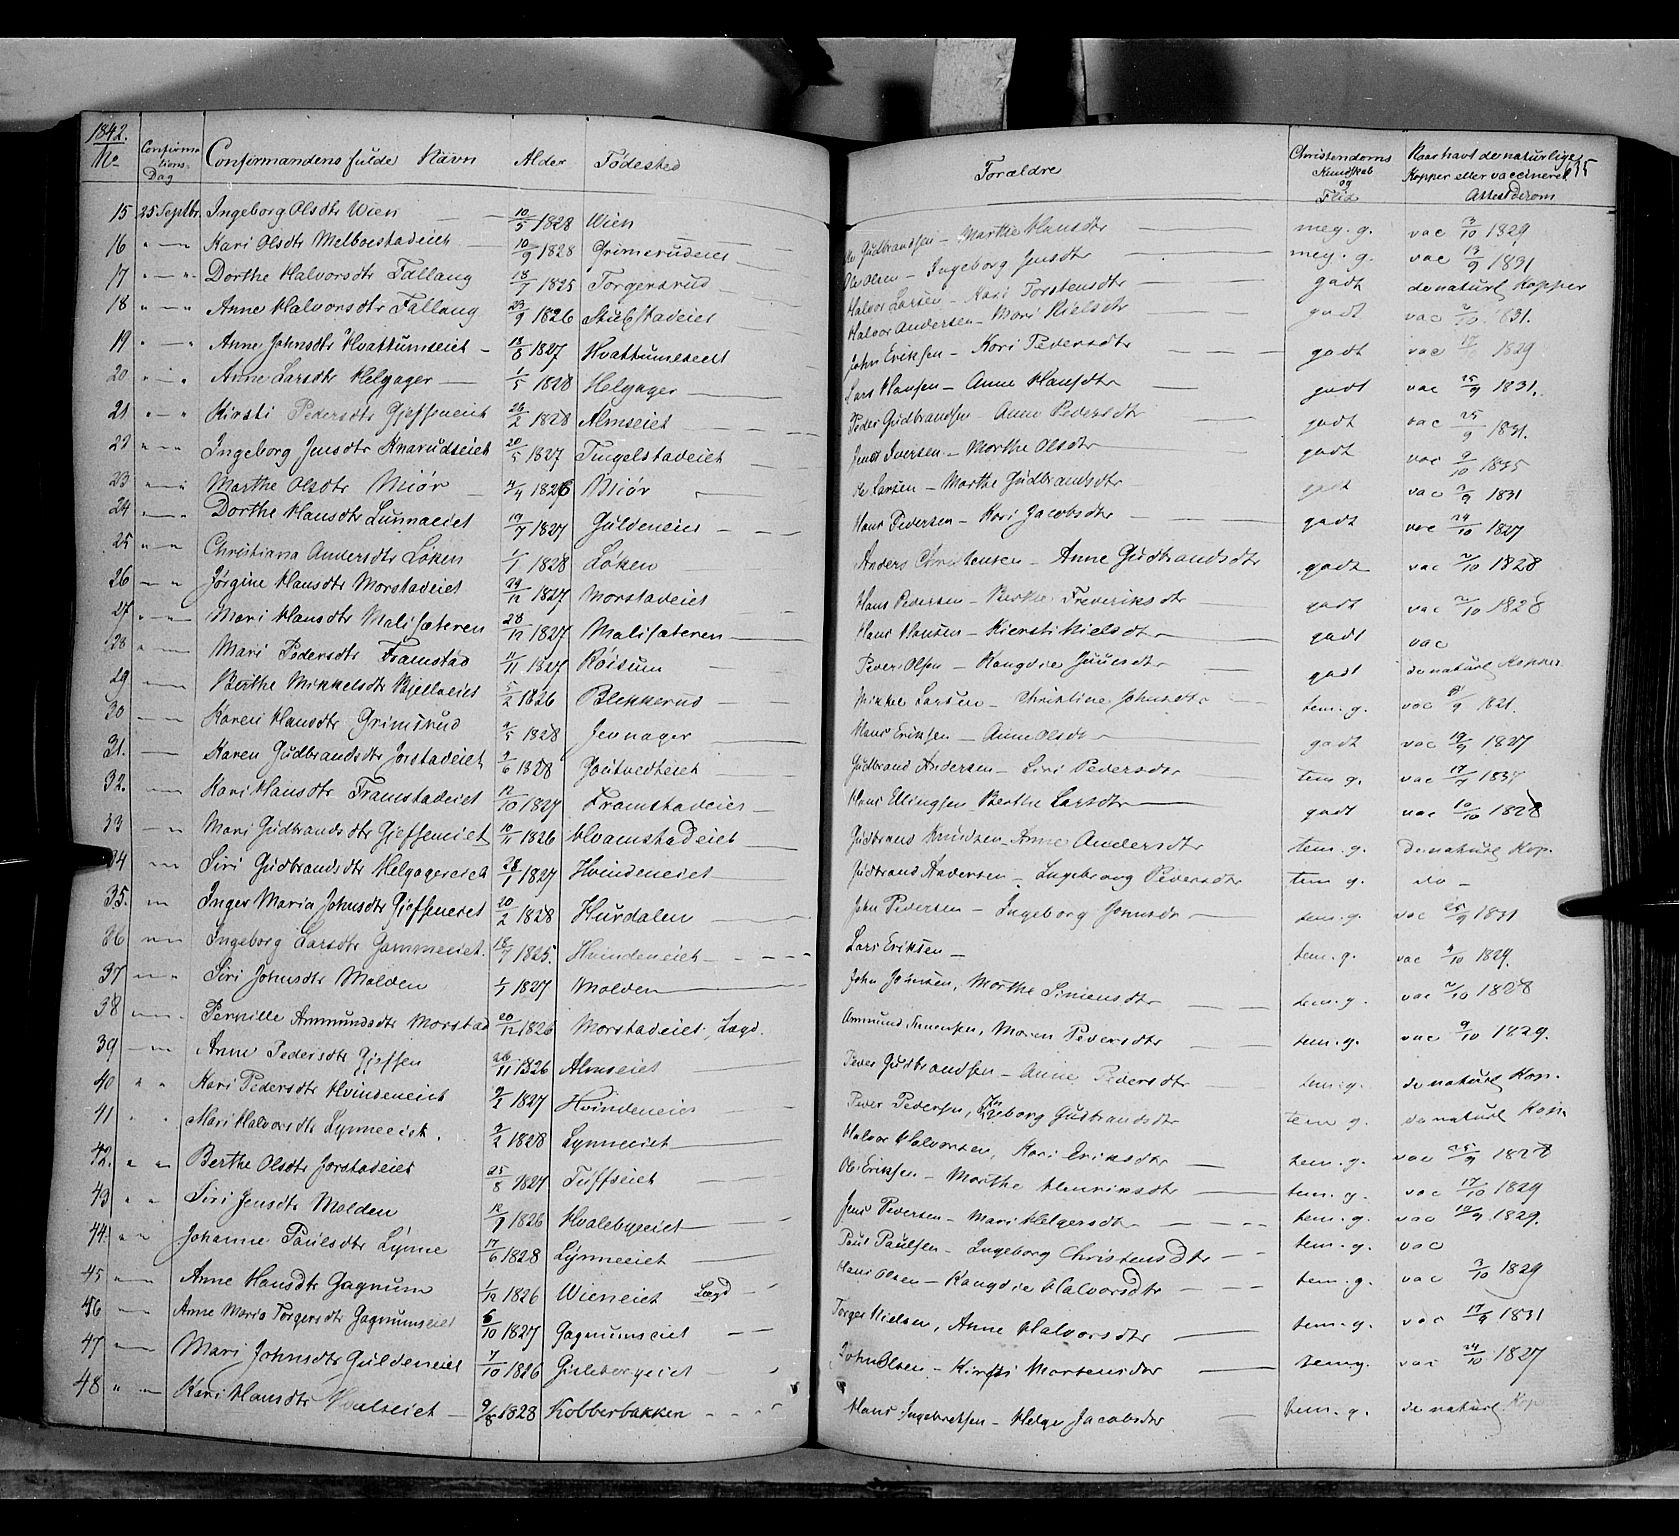 1842.
No Confirmations Dag Confirmandens fulde Navn Alder Fødested Forældre Christendoms Kundskab og Flid Naar havt de naturlige Kopper eller vaccineret Attest derom
15 25 Septbr. Ingeborg Olsdtr Wien 10/5 1828 Wien Gudbrandsen - Marthe Hansdtr meg. g. vac 3/10 1829
16 " Kari Olsdtr Melboestadeiet 10/9 1828 Grimsrudeiet Ole Olsen - Ingeborg Jensdtr meg. g. vac 13/9 1831
17 " Dorthe Halvorsdtr Fallang 18/7 1825 Torgersrud Halvor Larsen - Kari Torstensdtr godt de naturl Kopper
18 " Anne Halvorsdtr Fallang 23/9 1826 Stubstadeiet Halvor Andersen - Mari Nielsdtr godt vac 1831.
19 " Anne Johnsdtr Hvattumseiet 18/8 1827 Hvattumseiet John Eriksen - Kari Pedersdtr godt vac 1829
20 " Anne Larsdtr Helgager 1/5 1828 Helgager Lars Hansen - Anne Hansdtr godt vac 25/9 1831.
21 " Kirsti Pedersdtr Gjefseneiet 26/2 1828 Almseiet Peder Gudbrandsen - Anne Pedersdtr godt vac 25/9 1831.
22 " Ingeborg Jensdtr Knarudseiet 20/5 1827 Tingelstadeiet Jens Iversen - Marthe Olsdtr godt vac 9/10 1835
23 " Marthe Olsdtr Miør 7/4 1826 Miør Ole Larsen - Marthe Gudbrandsdtr godt vac 1831
24 " Dorthe Hansdtr Lunnaeiet 19/7 1827 Guldeneiet Hans Pedersen - Kari Jacobsdtr godt vac 24/10 1827
25 " Christiana Andersdtr Løken 1/1 1828 Løken Anders Christensen - Anne Gudbrandsdtr godt vac 1828
26 " Jørgine Hansdtr Morstadeiet 29/12 1827 Morstadeiet Hans Pedersen - Berthe Frederiksdtr godt vac 1828
27 " Mari Hansdtr Malisæteren 28/12 1827 Malisæteren Hans Hansen - Kiersti Nielsdtr godt vac
28 " Mari Pedersdtr Framstad 11/11 1827 Røisum Peder Olsen - Rangdie Juulsdtr godt de naturl Kopper
29 " Berthe Mikkelsdtr Bjellaeiet 1826 Blekkerud Mikkel Larsen - Christine Johnsdtr tem. g. vac 1821.
30 " Karen Hansdtr Grimsrud 2/5 1828 Jevnager Hans Eriksen - Anne Olsdtr godt vac 19/9 1827
31. Karen Gudbrandsdtr Jorstadeiet 9/6 1828 Gudbrand Andersen - Siri Pedersdtr tem g. vac 1837
32. Kari Hansdtr Framstadeiet 12/10 1827 Framstadeiet Hans Ellingsen Berthe Larsdtr godt vac 10/10 1828
33 " Mari Gudbrandsdtr Gjefseneiet 10/11 1826 Hvamstadeiet Gudbrand Knudsen - Anne Andersdtr tem. g. de naturl Kop.
34 " Siri Gudbrandsdtr Helgagereiet 28/1 1827 Hvindeneiet Gudbrand Andersen - Ingebraag Pedersdtr tem g. do -
35. " Inger Maria Johnsdtr Gjefseneiet 20/2 1828 Hurdalen John Pedersen - Ingeborg tem. g. vac 25/9 1831
36 " Ingeborg Larsdtr Gammeeiet. 18/7 1825. Hvindeneiet Lars Eriksen - tem. g. vac 4/10 1829.
37 " Siri Johnsdtr Molden 1/1 1827 Molden John Johnsen, Marthe Simensdtr tem. g. vac 1828
38 " Pernille Ammundsdtr Morstad 20/12 1826 Morstadeiet, Lægd. Ammund Simensen, Maren Pedersdtr tem. g. vac 9/10 1829.
39 " Anne Pedersdtr Gjefsen 26/11 1826 Almseiet Peder Gudbrandsen - Anne Pedersdtr tem. g. de naturl Kop.
40 " Kari Pedersdtr Hvindeneiet 1827 Hvindeneiet Peder Pedersen, Ingeborg Gudbrandsdtr tem g. de naturl Kop.
41 " Mari Halvorsdtr Lynneeiet. 9/2 1828 Lynneeiet Halvor Halvorsen, Kari Eriksdtr tem. g. vac 25/9 1828
42. " Berthe Olsdtr Jorstadeiet 25/8 1827 Tuffseiet Ole Eriksen - Marthe Henriksdtr tem. g. vac 17/10 1829
43 " Siri Jensdtr Molden 1826 Hvalebyeiet Jens Pedersen - Mari Helgersdtr tem. g. vac 1829.
44. " Johanne Paulsdtr Lynne 17/6 1828 Lynneeiet Paul Paulsen - Ingeborg Christensdtr tem. g. vac
45 " Anne Hansdtr Gagnum 1/12 1826 Wieneiet Lægd Hans Olsen - Rangdie Halvorsdtr tem. g. vac 3/10 1829
46 " Anne Maria Torgersdtr Gagnumseiet 6/10 1827 Gagnumseiet Torger Nielsen, Anne Halvorsdtr tem. g. vac 17/9 1831
47 " Mari Johnsdtr Guldeneiet 7/10 1826 Gislebergeiet John Olsen - Kirsti Mortensdtr tem g. vac 24/10 1827
48 " Kari Hansdtr Hvalseiet 9/8 1828 Kobberbakken Hans Ingebretsen - Helge Jacobsdtr tem. g. de naturl. Kop